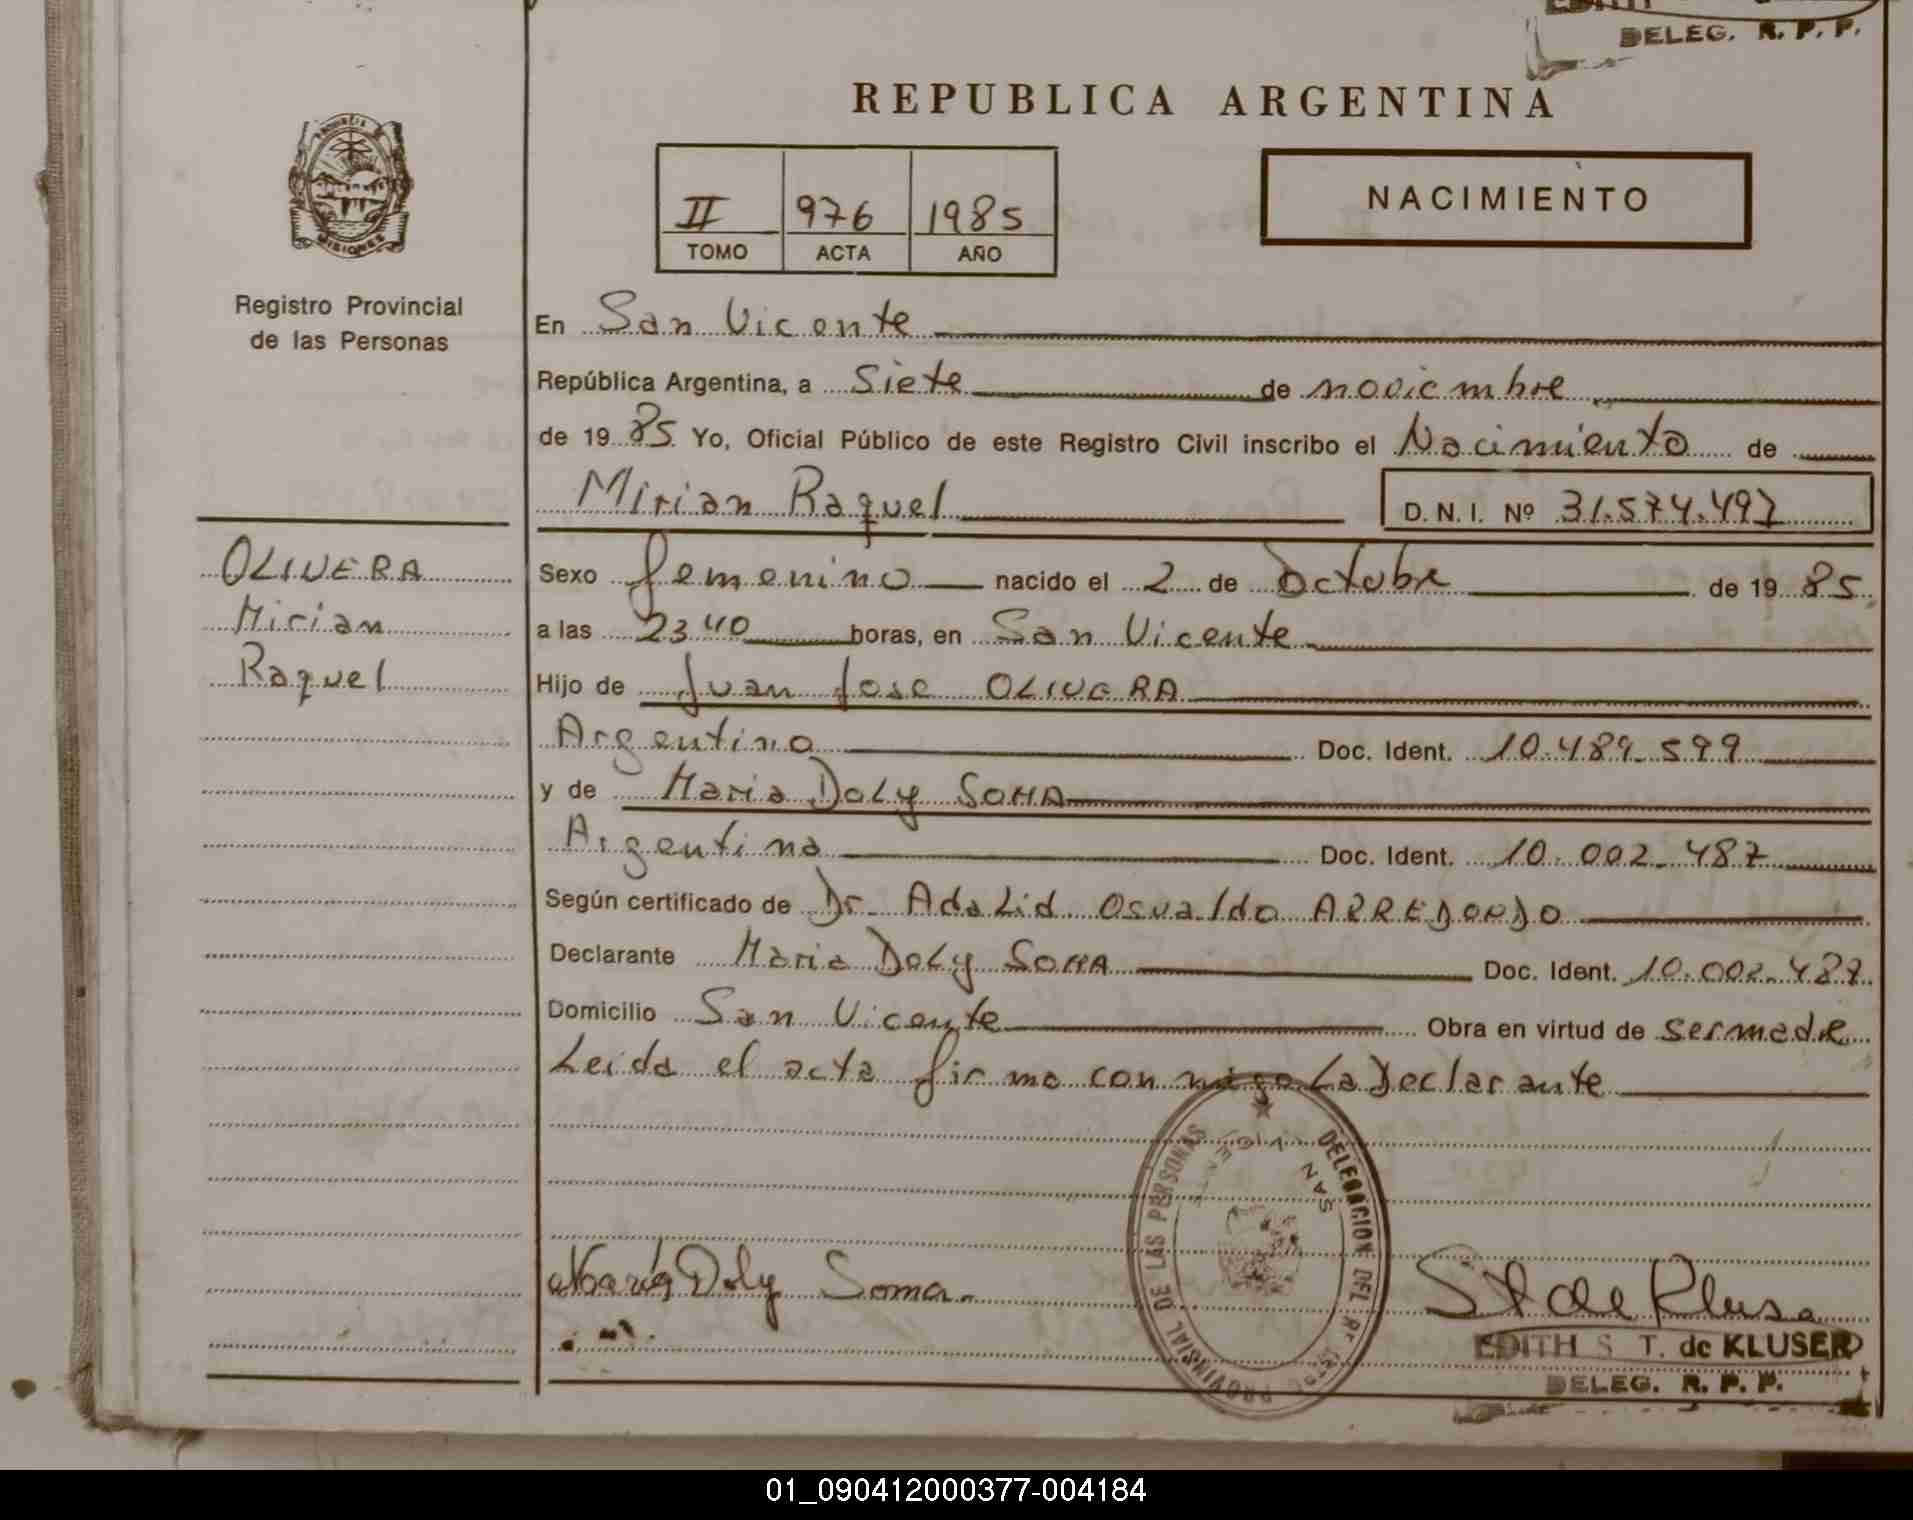 DELEG. R. P. P.
REPUBLICA ARGENTINA
PROVINCIA
MISIONES
II 976 1985
TOMO ACTA AÑO
NACIMIENTO
Registro Provincial
de las Personas
En San Vicente
República Argentina, a Siete de noviembre
de 19 85 Yo, Oficial Público de este Registro Civil inscribo el Nacimiento de
Mirian Raquel D. N. I. Nº 31.574.497
OLIVERA
Mirian
Raquel
Sexo femenino nacido el 2 de Octubre de 19 85
a las 23 40 horas, en San Vicente
Hijo de Juan Jose OLIVERA
Argentino Doc. Ident. 10.489.599
y de Maria Doly SOMA
Argentina Doc. Ident. 10.002.487
Según certificado de Dr. Adalid Osvaldo ARREDONDO
Declarante Maria Doly SOMA Doc. Ident. 10.002.487
Domicilio San Vicente Obra en virtud de ser madre
Leida el acta firma con migo La Declarante
DELEGACION DEL PROVINSIAL DE LAS PERSONAS
SAN VICENTE
Maria Doly Soma
EDITH S. T. de KLUSER
DELEG. R. P. P.
01_090412000377-004184